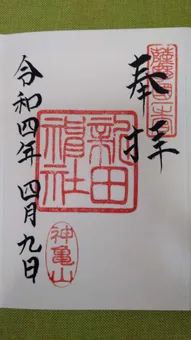 奉拝
新田
神社
神亀山
令和四年 四月九日